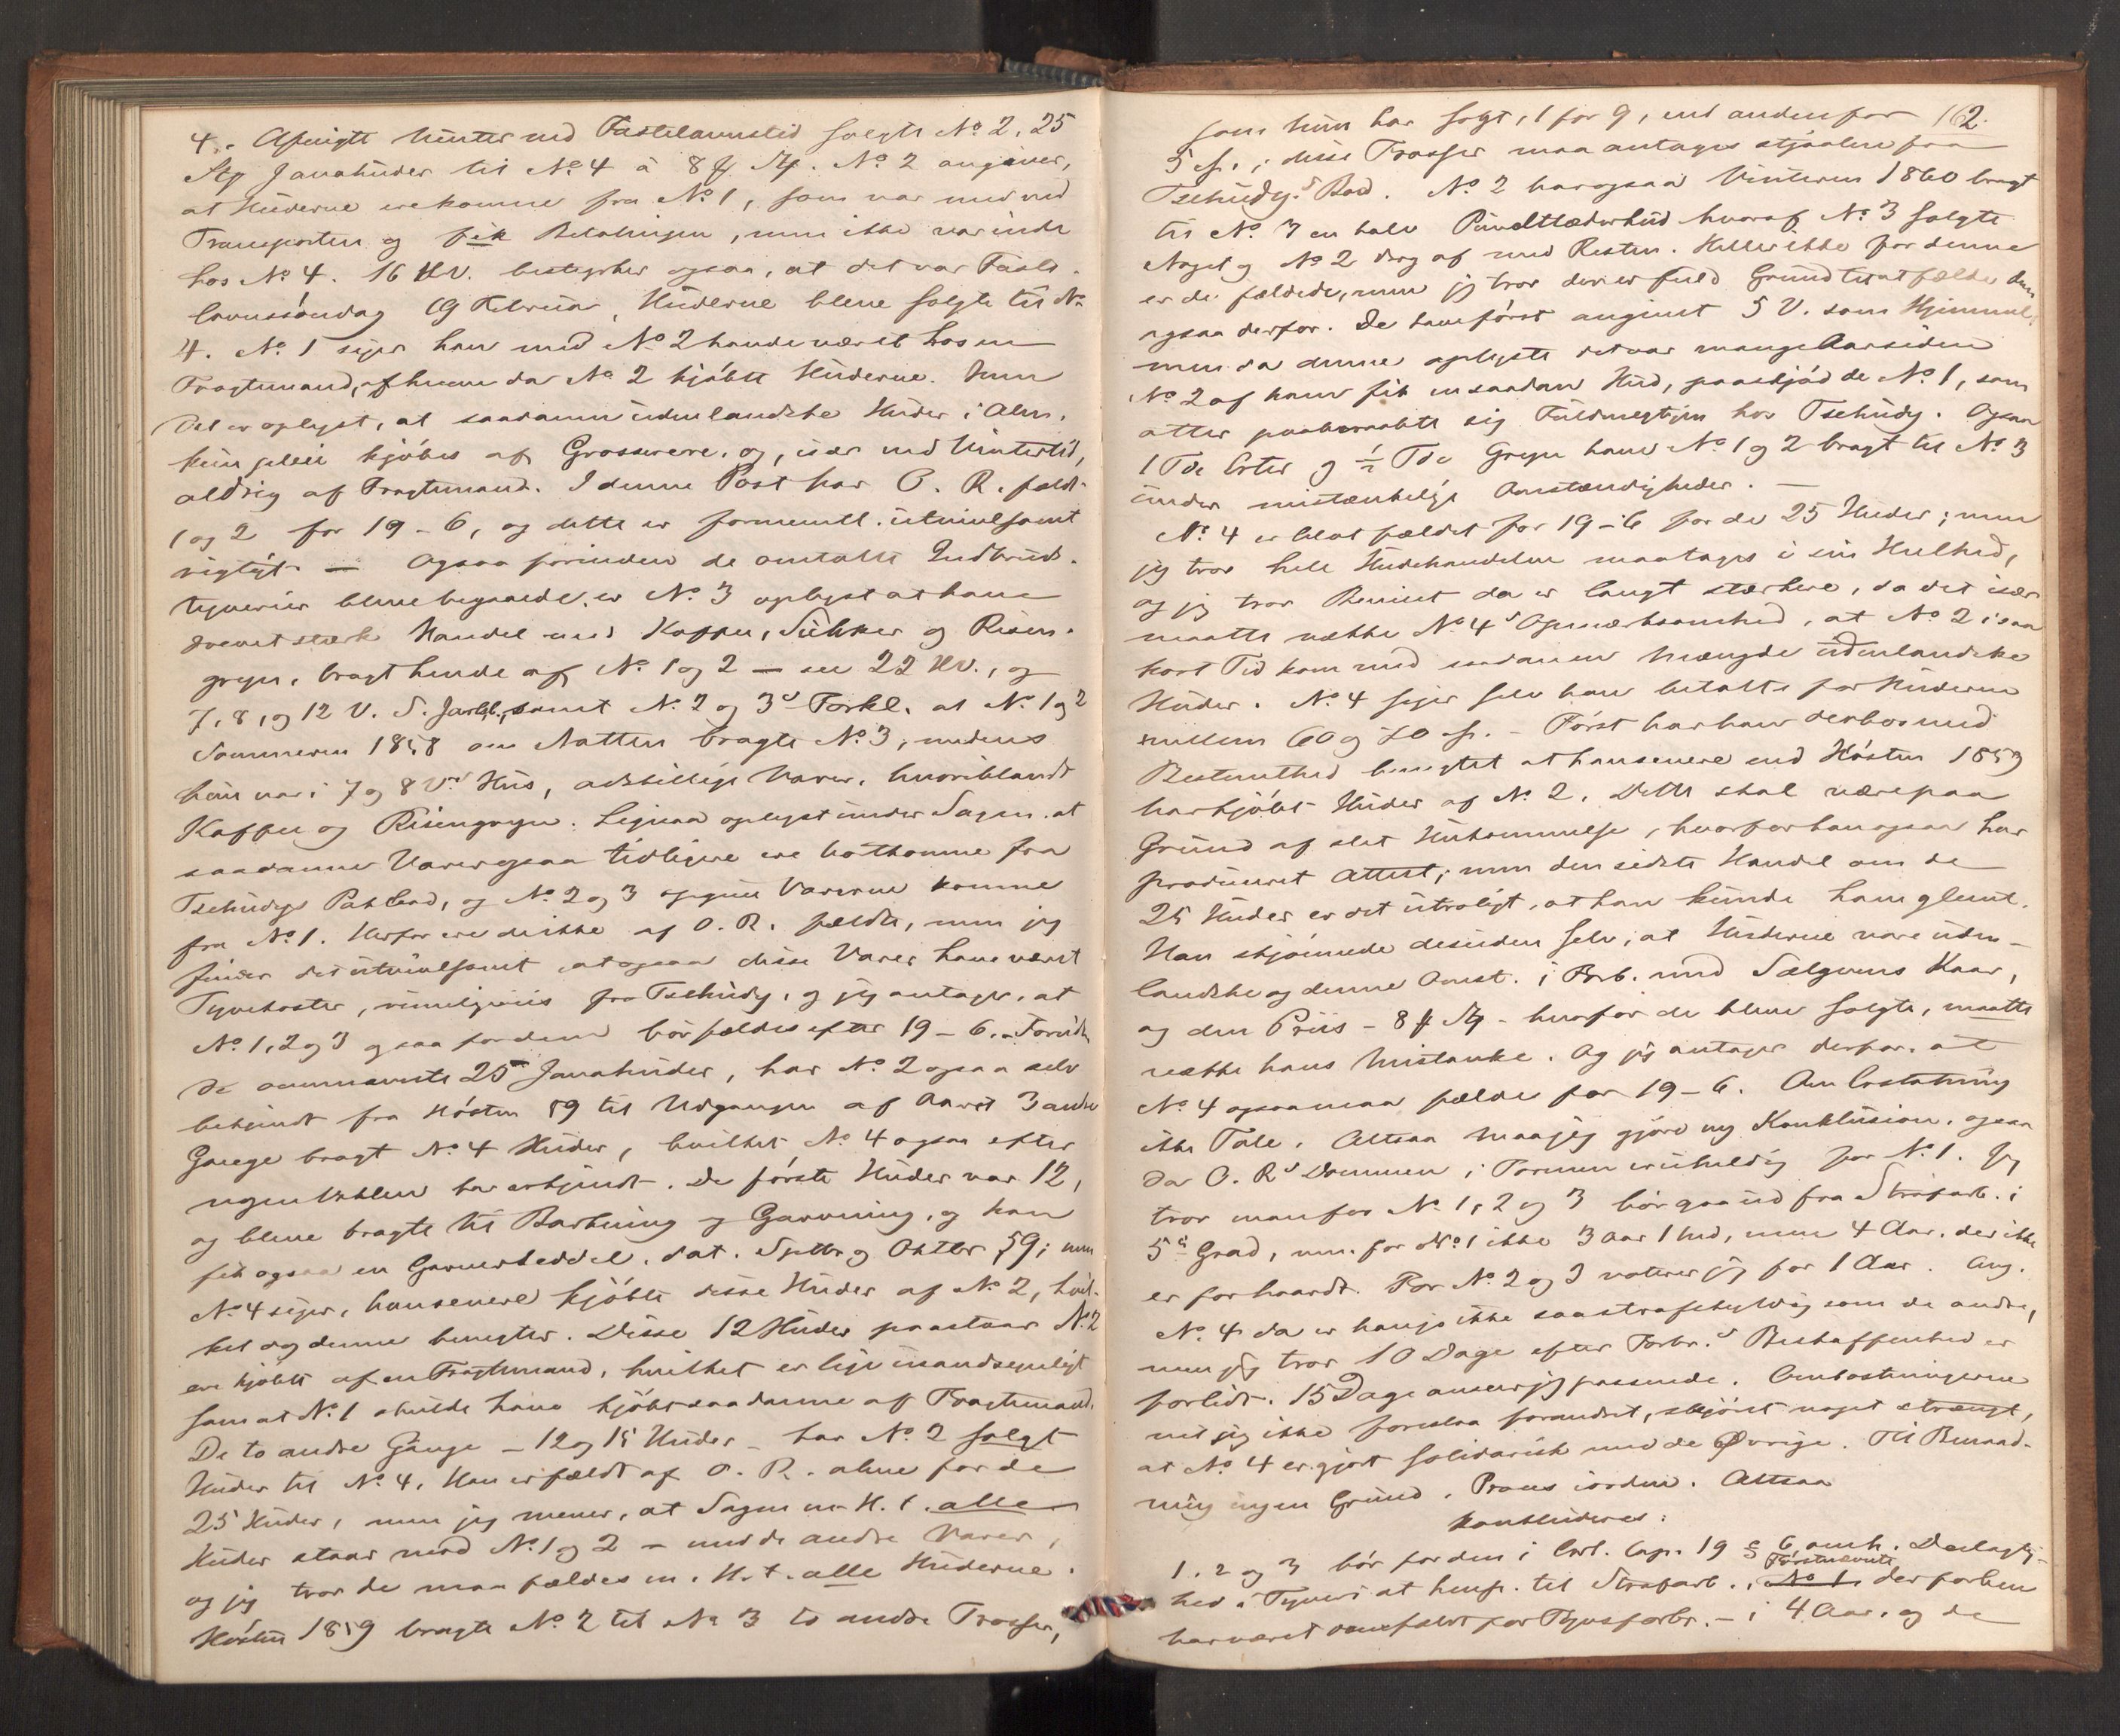 4. Afvigte Vinter ved Fastelavnstid solgte No 2, 25
Stp Javahuder til No 4 à 8 ß Stp. No 2 angiver,
at Huderne ere komne fra No 1, som var med ved
Transporten og fik Betalingen, men ikke var inde
hos No 4. 16 HV. bestyrker ogsaa, at det var Faste-
lavnssöndag 19 Februar, Huderne bleve solgte til No
4. No 1 siger han med No 2 havde været hos en
Fragtmand, af hvem da No 2 kjöbte Huderne. Men
det er oplyst, at saadanne udenlandske Huder i Alm.
kun pleie kjöbes af Grosserere, og, især ved Vintertid,
aldrig af Fragtmænd. I denne Post har O. R. fældt
1 og 2 for 19 - 6, og dette er formentl. utvivlsomt
rigtigt — Ogsaa forinden de omtalte Indbruds-
tyverier bleve begaaede, er No 3 oplyst at have
drevet stærk Handel med Kaffee, Sukker og Risen-
gryn, bragt hende af No 1 og 2 — see 22 HV., og
7, 8, og 12 V. S. samt No 2 og 3s Forkl. at No 1 og 2
Sommeren 1858 om Natten bragte No 3, medens
hun var i 7 og 8 Vs Hus, adskillige Varer, hvoriblandt
Kaffee og Risengryn. Ligesaa oplyst under Sagen, at
saadanne Varer ogsaa tidligere ere bortkomne fra
Tschudys Pakbod, og No 2 og 3 opgive Varerne komne
fra No 1. Herfor ere de ikke af O. R. fældte, men jeg
finder det utvivlsomt, at ogsaa disse Varer have været
Tyvekoster, rimeligviis fra Tschudy, og jeg antager, at
No 1, 2 og 3 ogsaa for dem bör fældes efter 19 - 6. Foruden
de ommeldte 25 Javahuder, har No 2 ogsaa selv
bekjendt fra Hösten 59 til Udgangen af Aaret 3 andre
Gange bragt No 4 Huder, hvilket No 4 ogsaa efter
nogen Vaklen har erkjendt. De förste Huder var 12,
og bleve bragte til Barkning og Garvning, og han
fik ogsaa en Garverseddel, dat. Septbr og Oktbr 59; men
No 4 siger, han senere kjöbte disse Huder af No 2, hvil-
ket og denne benegter. Disse 12 Huder paastaar No 2
ere kjöbte af en Fragtmand, hvilket er lige usandsynligt
som at No 1 skulde have kjöbt saadanne af Fragtmand.
De to andre Gange - 12 og 15 Huder - har No 2 solgt
Huder til No 4. Han er fældt af O. R. alene for de
25 Huder, men jeg mener, at Sagen m. H. t. alle
Huder staar med No 1 og 2 - med de andre Varer,
og jeg tror de maa fældes m. H. t. alle Huderne.
Hösten 1859 bragte No 2 til No 3 to andre Trosser,
162.
som hun har solgt, 1 for 9, en anden for
5 ß.; disse Trosser maa antages stjaalne fra
Tschudys Bod. No 2 har ogsaa Vinteren 1860 bragt
til No 3 en halv Pundlæderhud hvoraf No 3 solgte
Noget og No 2 drog af med Resten. Heller ikke for denne
er de fældede, men jeg tror der er fuld Grund til at fælde dem
ogsaa derfor. De have först angivet 5 V. som Hjemmel,
men da denne oplyste det var mange Aar siden
No 2 af ham fik en saadan Hud, paaskjöd de No 1, som
atter paaberaabte sig Fuldmegtigen hos Tschudy. Ogsaa
1 Tde Erter og ½ Tde Gryn have No 1 og 2 bragt til No 3
under mistænkelige Omstændigheder. —
No 4 er blot fældet for 19 - 6 for de 25 Huder; men
jeg tror hele Hudehandelen maa tages i sin Helhed,
og jeg tror Beviset da er langt stærkere, da det især
maatte vække No 4s Opmærksomhed, at No 2 i saa
kort Tid kom med saadanne Mængde udenlandske
Huder. No 4 siger selv han betalte for Huderne
mellem 60 og 70 ß. - Först har han derhos med
Bestemthed benegtet at han senere end Hösten 1859
har kjöbt Huder af No 2. Dette skal være paa
Grund af slet Hukommelse, hvorfor han ogsaa har
produceret Attest; men den sidste Handel om de
25 Huder er det utroligt, at han kunde have glemt.
Han skjönnede desuden selv, at Huderne vare uden-
landske og denne Omst. i Forb. med Sælgerens Kaar,
og den Priis - 8 ß Stp - hvorfor de bleve solgte, maatte
vække hans Mistanke. Og jeg antager derfor, at
No 4 ogsaa maa fældes for 19 - 6. Om Erstatning
ikke Tale. Altsaa maa jeg gjöre ny Konklusion, ogsaa
da O. Rs Dommen i Formen er uheldig for No 1. Jeg
tror man for No 1, 2 og 3 bör gaa ud fra Strafarb. i
5te Grad, men for No 1 ikke 3 Aar 1 Md, men 4 Aar, der ikke
er for haardt. For No 2 og 3 voterer jeg for 1 Aar. Ang.
No 4 da er han jo ikke saa strafskyldig som de andre,
men jeg tror 10 Dage efter Forbr.s Beskaffenhed er
for lidt. 15 Dage anser jeg passende. Omkostningerne
vil jeg ikke foreslaa forandret, skjönt noget strengt,
at No 4 er gjort solidarisk med de Övrige. Til Benaad-
ning ingen Grund. Proces i orden. Altsaa
konkluderes:
1, 2 og 3 bör for den i Crl. Cap. 19 § 6 omh. Delagtig-
hed i Tyveri at hensp. til Strafarb., <del>No 1</del> Förstnævnte der forhen
har været straffældt for Tyvsforbr. - i 4 Aar, og de